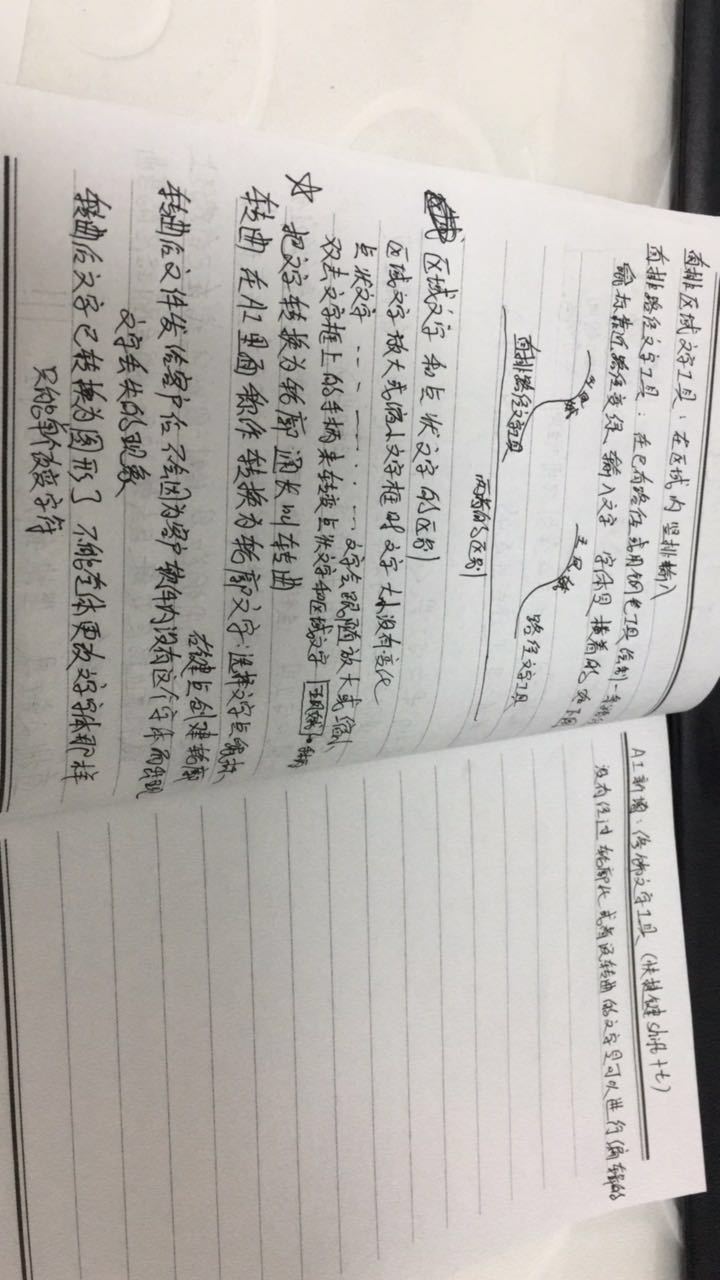 直排区域文字工具：在区域内竖排输入
直排路径文字工具：在已有路径或用钢笔工具绘制一条路径
鼠标靠近路径直接输入文字 字体是横着的
直排路径文字工具
路径文字工具
两者的区别
区域文字和点状文字的区别
区域文字放大或缩小文字框时文字大小没有变化
点状文字 ………… 文字会跟随放大或缩小
双击文字框上的手柄来转变点状文字和区域文字
☆ 把文字转换为轮廓 通长叫转曲
转曲在AI里面称作转换为轮廓文字：选择文字点鼠标
右键点创建轮廓
转曲后文件发给客户后不会因为客户软件内没有这个字体而出现
文字丢失的现象
转曲后文字已转换为图形了 不能在更改文字字体那样
只能单改变字符
AI新增：修饰文字工具（快捷键shift+t）
没有经过轮廓化或者没转曲的文字是可以进行编辑的